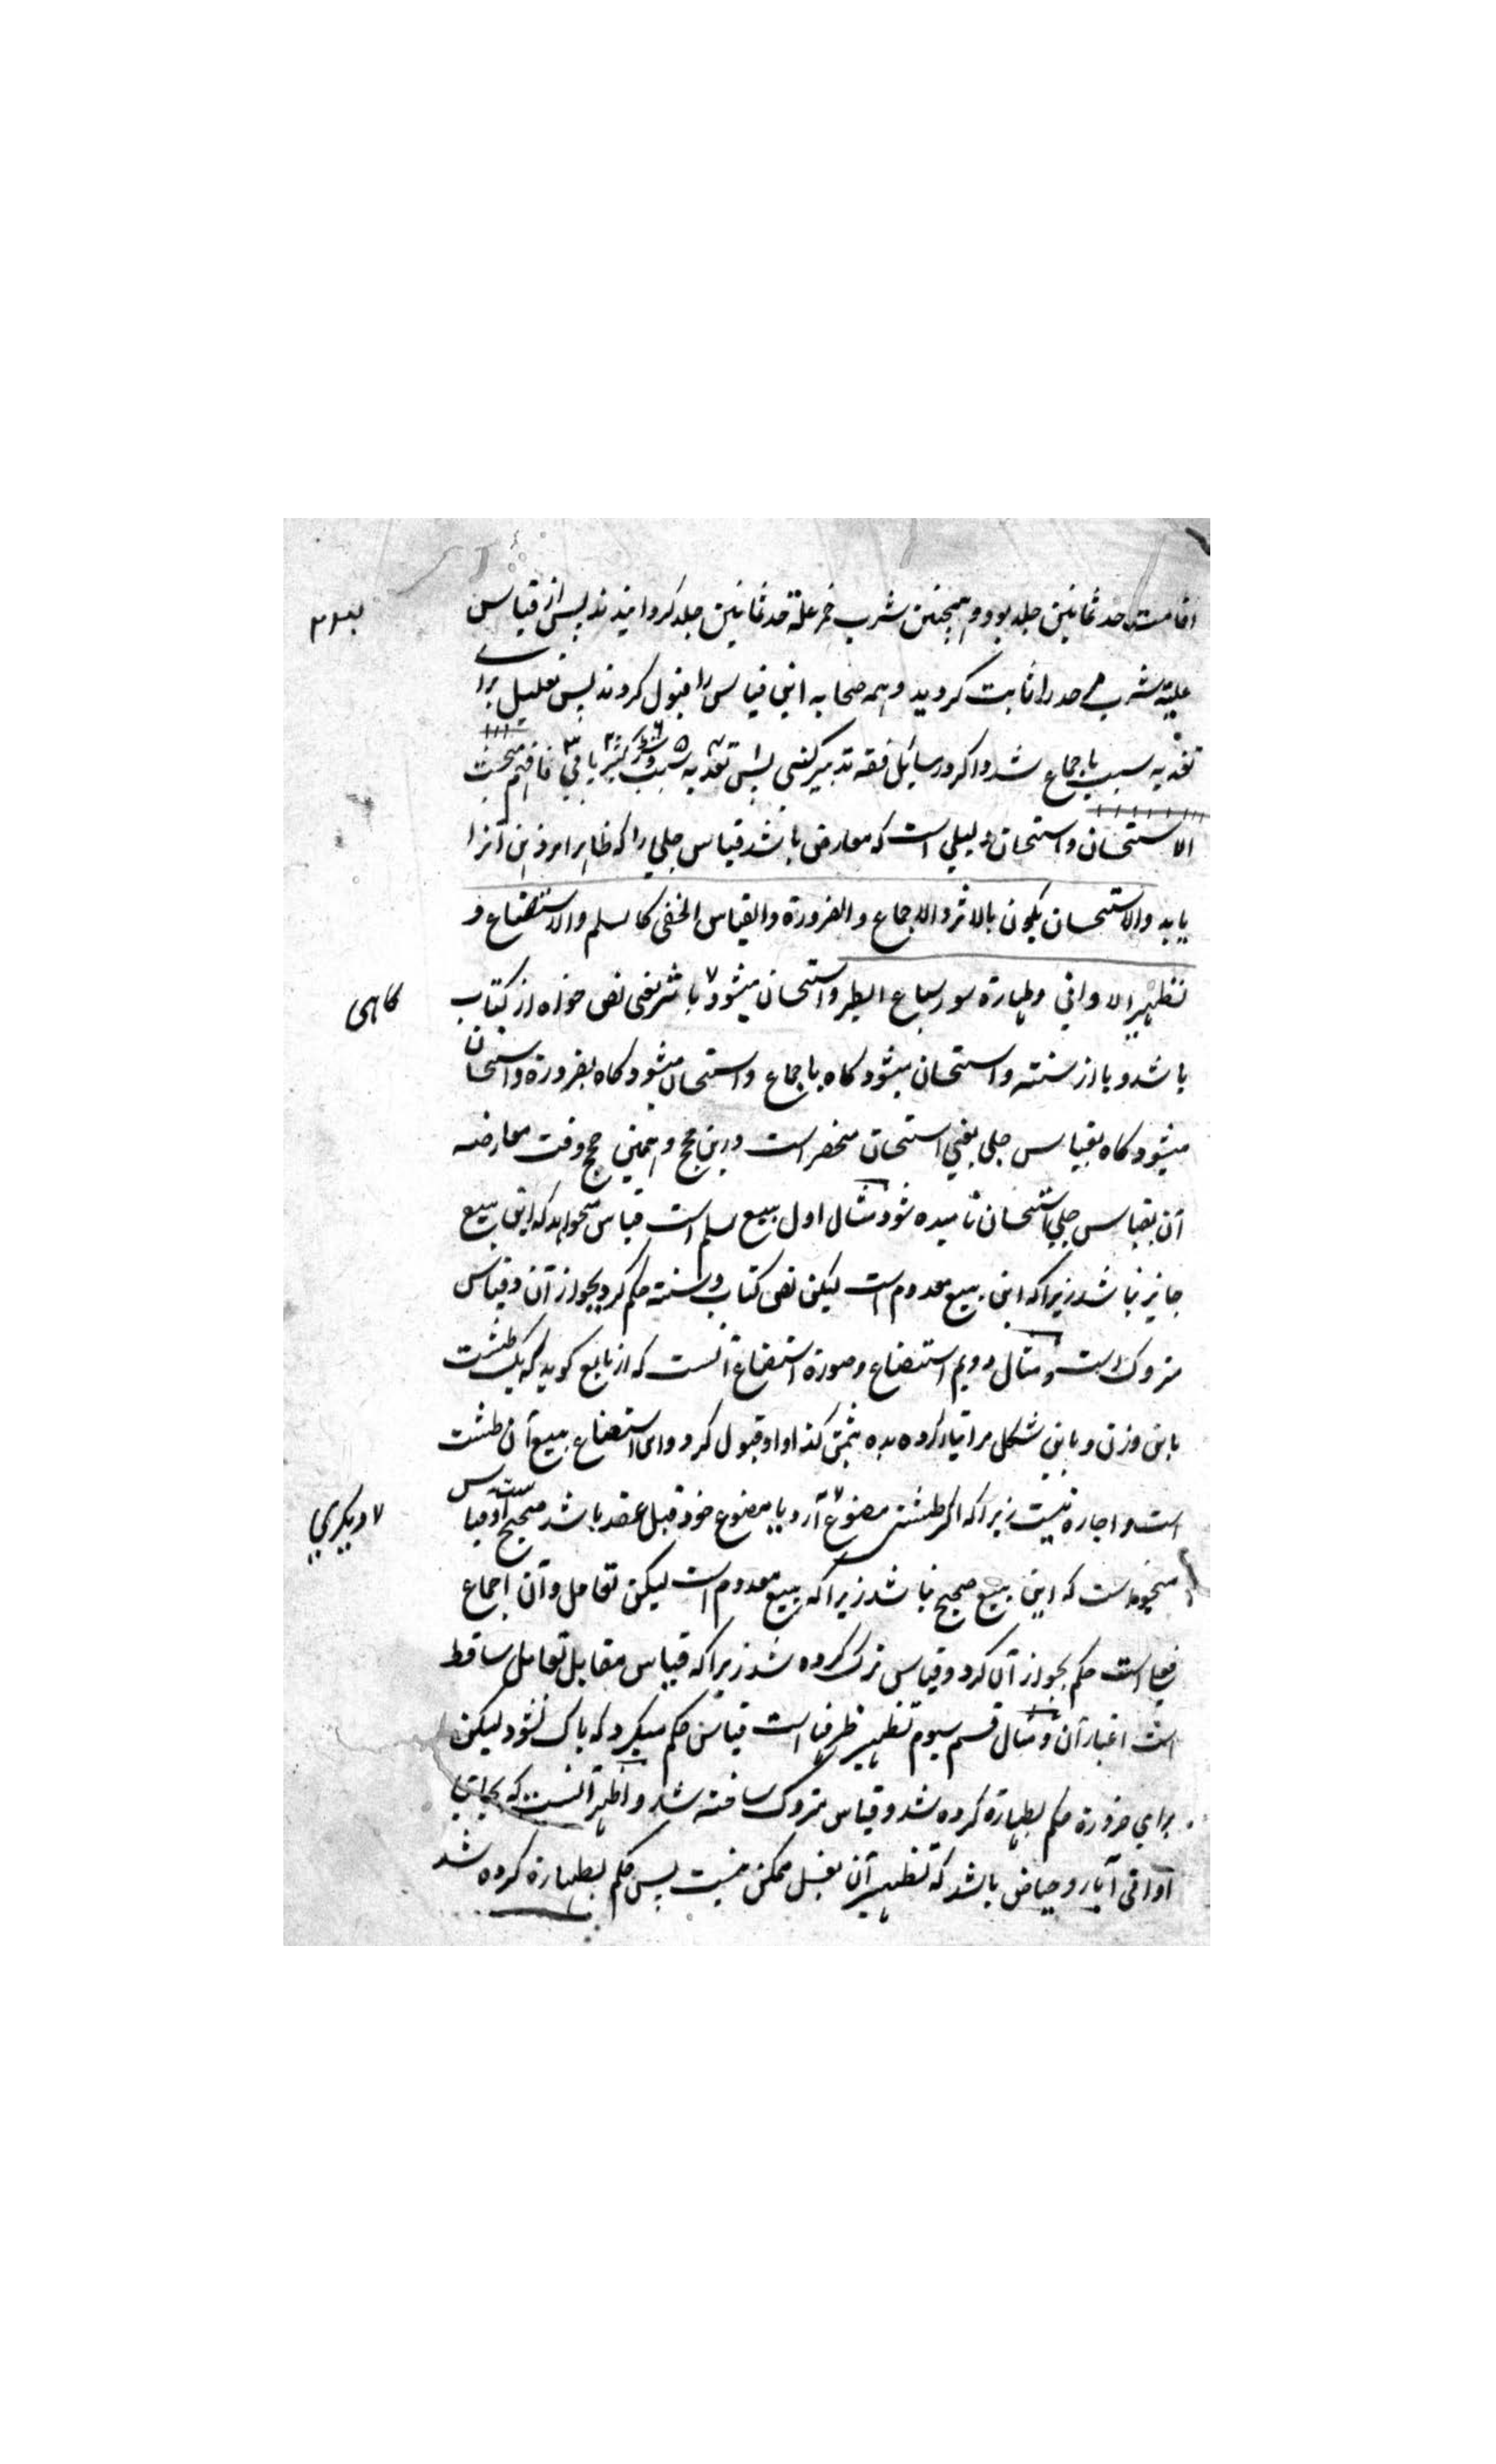 اقامت حد ثمانین جلد بود و همچنین شرب خمر علة حد ثمانین جلد گردانیدند پس از قیاس
علیته شرب می حد را ثابت گردید و همه صحابه این قیاس را قبول کردند پس تعلیل برای
تعدیه سبب باجماع شد و اگر در سائل فقه تدبیر کنی پس تعدیه سبب و شرط کثیر یابی فافهم مبحث
الاستحسان و استحسان دلیلی است که معارض باشد قیاس جلی را که ظاهرا مر ذهن آنرا
یابد والاستحسان یکون بالاثر والاجماع والضرورة والقیاس الخفی کالسلم والاستصناع و
تطهیر الاوانی وطهارة سور سباع الطیر و استحسان میشود باثر یعنی نص خواه از کتاب
گاهی
باشد و یا از سنته و استحسان میشود گاه باجماع و استحسان میشود گاه بضرورة و استحسان
میشود گاه بقیاس جلی یعنی استحسان منحصر است درین حجج و همین حجج وقت معارضه
آن بقیاس جلی استحسان نامیده شود مثال اول بیع سلم است قیاس میخواهد که این بیع
جایز نباشد زیراکه این بیع معدوم است لیکن نص کتاب و سنته حکم کرد بجواز آن و قیاس
متروک است و مثال دویم استصناع و صورة استصناع آنست که از بایع گوید که یک طشت
باین وزن و باین شکل مرا تیار کرده بده بثمن کذا و او قبول کرد و این استصناع بیع آن طشت
است و اجاره نیست زیراکه اگر طشتی مصنوع آرد یا مصنوع خود قبل عقد باشد صحیح است و قیاس
دیگری
میخواست که این بیع صحیح نباشد زیراکه بیع معدوم است لیکن تعامل و آن اجماع
است حکم بجواز آن کرد و قیاس ترک کرده شد زیراکه قیاس مقابل تعامل ساقط
است اعتبار آن و مثال قسم سیوم تطهیر ظرفها است قیاس حکم میکرد که پاک نشود لیکن
برای ضرورة حکم بطهارة کرده شد و قیاس متروک ساخته شد و اظهر آنست که بجای
اوانی آبار و حیاض باشد که تطهیر آن بغسل ممکن نیست پس حکم بطهارة کرده شد